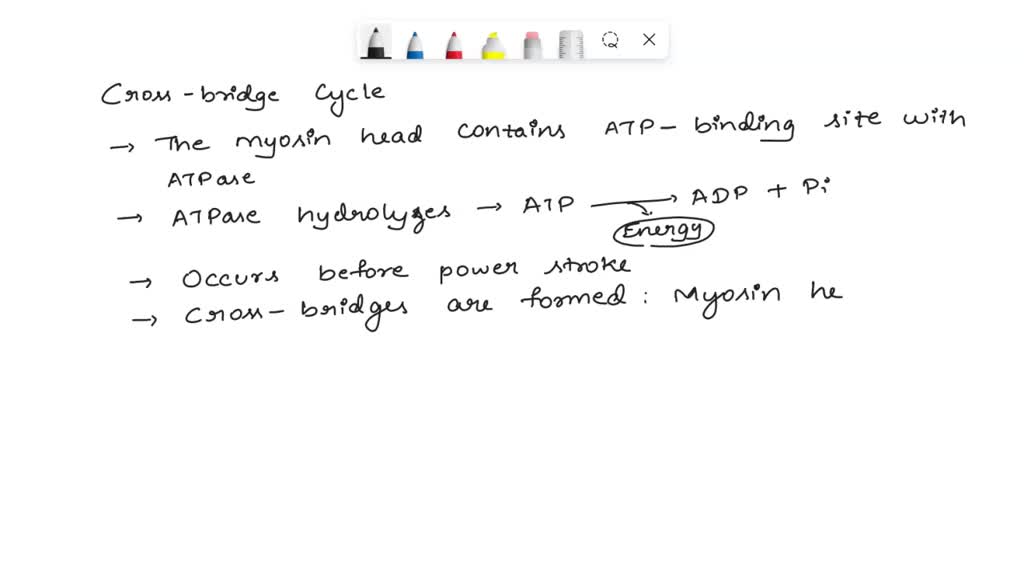 Cross-bridge Cycle
→ The myosin head contains ATP-binding site with
ATPase
→ ATPase hydrolyzes → ATP → ADP + Pi
Energy
→ Occurs before power stroke
→ Cross-bridges are formed: Myosin he